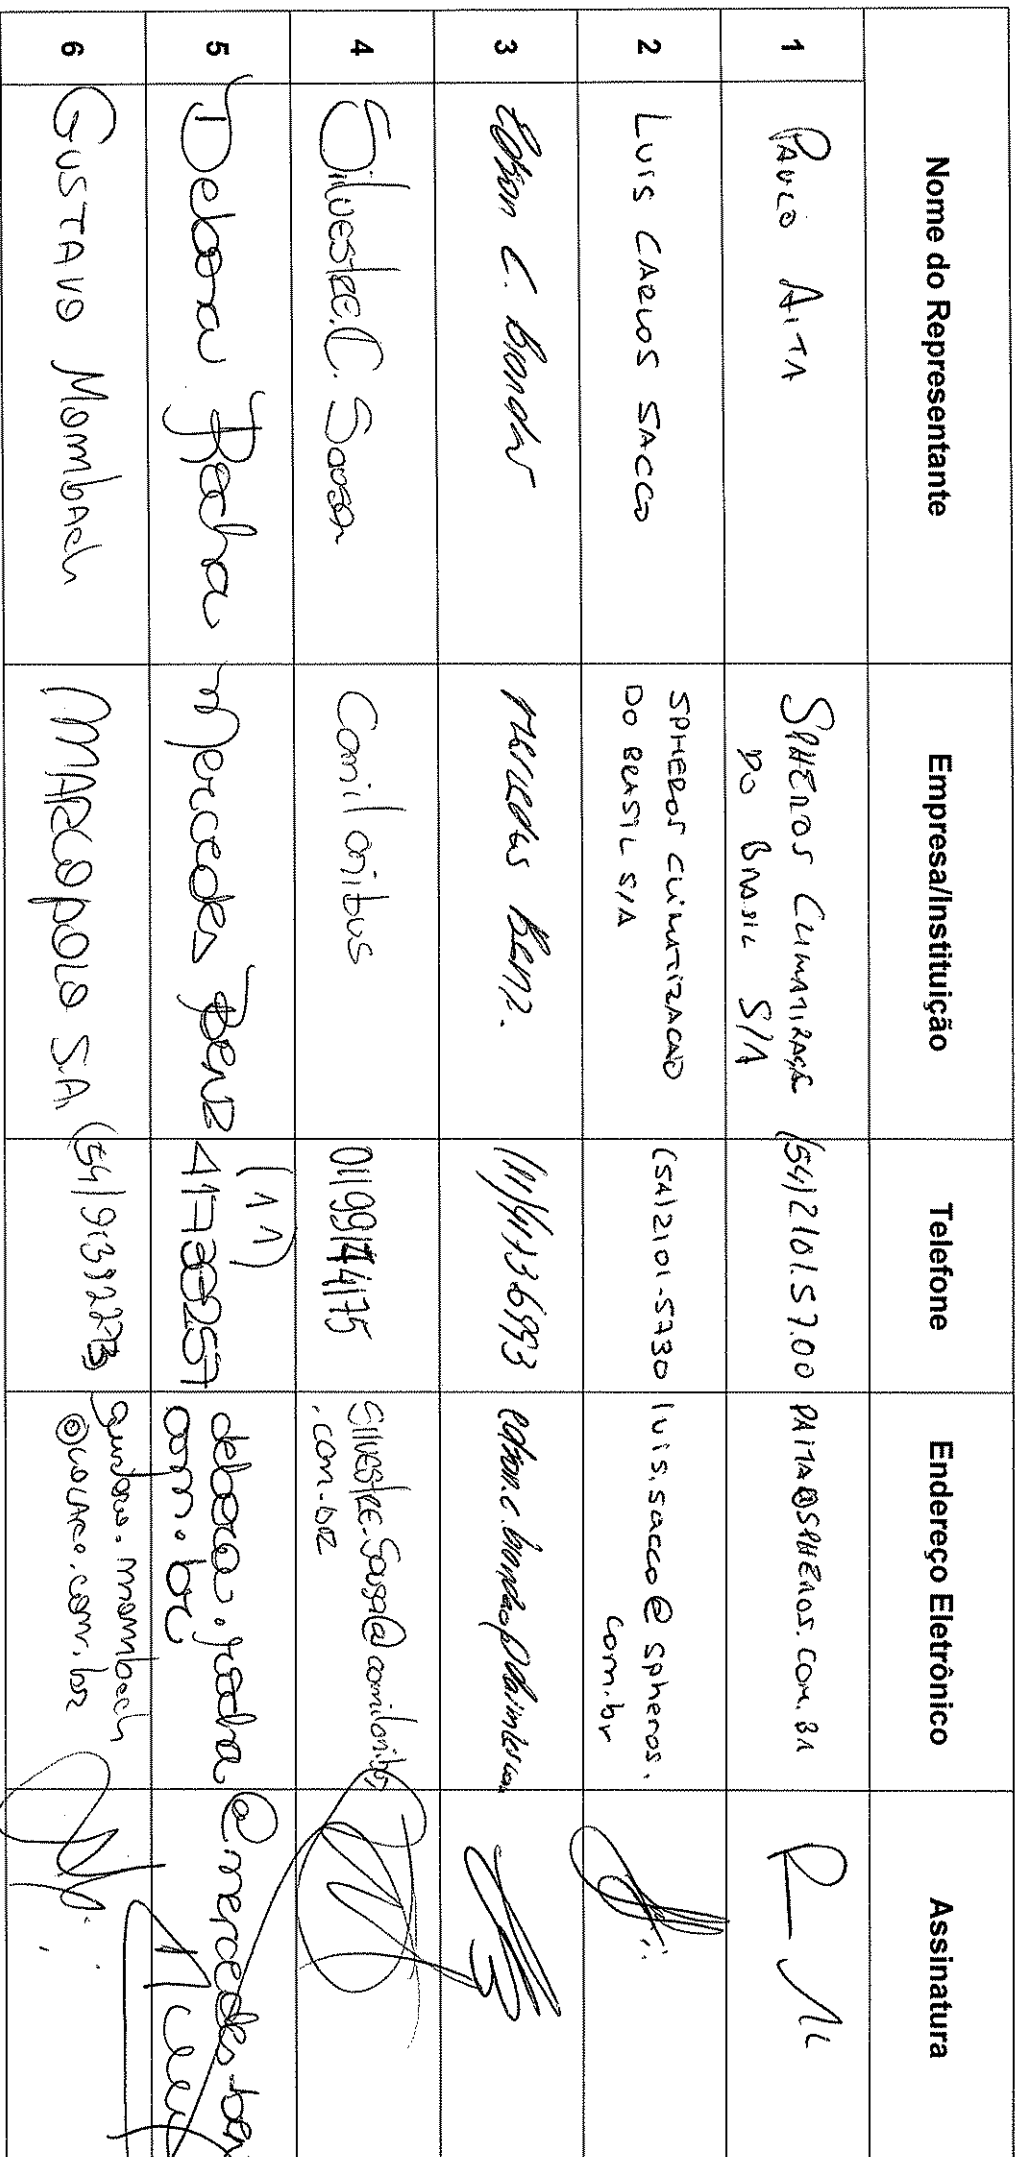 Nome do Representante Empresa/Instituição Telefone Endereço Eletrônico Assinatura
1 PAULO AITA SPHEROS CLIMATIZAÇÃO (54) 2101.5700 PAITA@SPHEROS.COM.BR
DO BRASIL S/A
2 LUIS CARLOS SACCO SPHEROS CLIMATIZACAO (54) 2101-5730 luis.sacco@spheros.
DO BRASIL S/A com.br
3 Edson C. Brandão Mercedes Benz. (11) 4173 6993 edson.c.brandao@daimler.com
4 Silvestre C. Sousa Comil onibus 011991744175 SILVESTRE.Sousa@comilonibus
.com.br
5 Debora Rocha Mercedes Benz (11) debora.rocha @mercedes-benz
41730257 com.br
6 GUSTAVO Mombach MARCOPOLO S.A (54) gustavo.mombach
.com.br